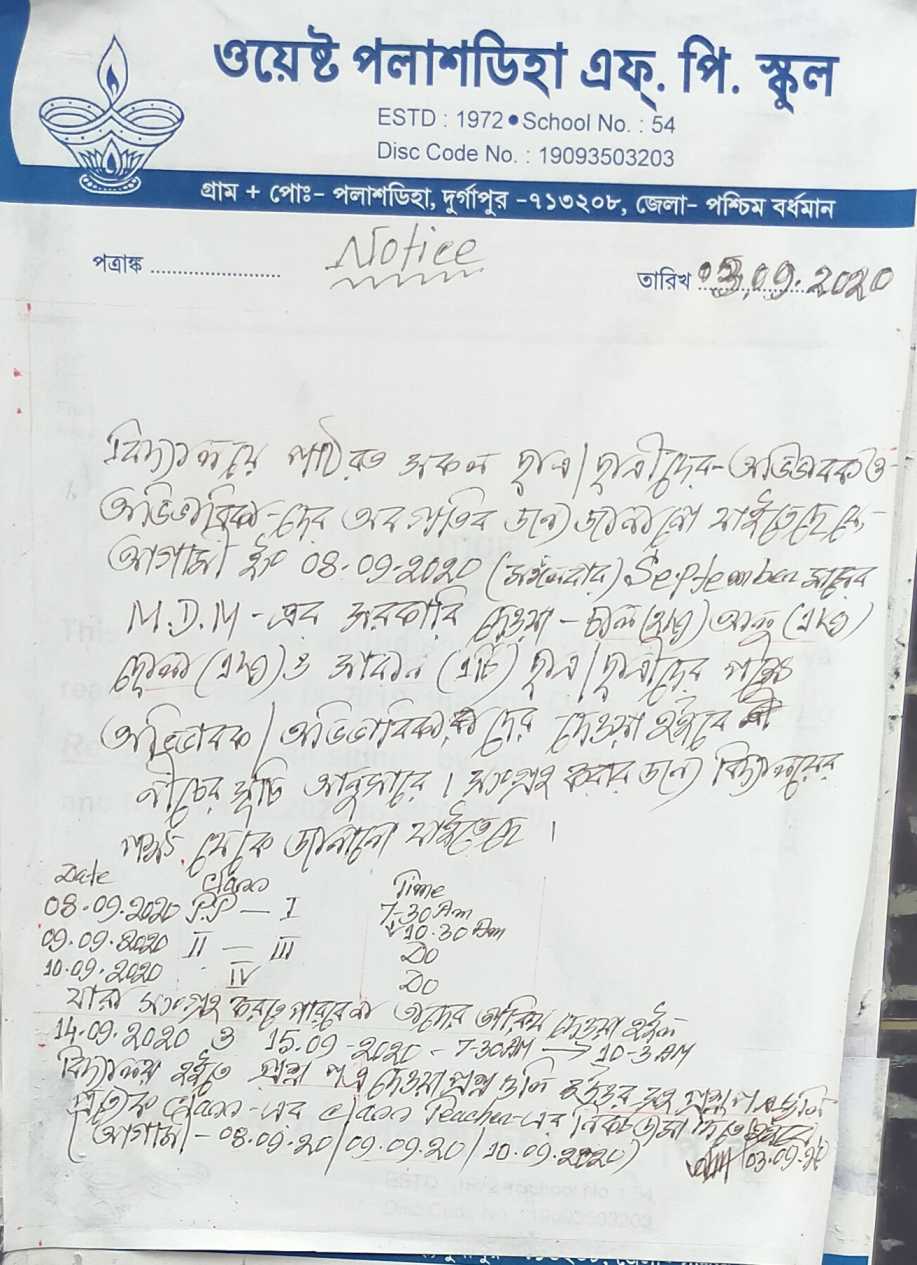 ওয়েষ্ট পলাশডিহা এফ্. পি. স্কুল
ESTD : 1972 • School No. : 54
Disc Code No. : 19093503203
গ্রাম + পোঃ- পলাশডিহা, দুর্গাপুর -৭১৩২০৮, জেলা- পশ্চিম বর্ধমান
Notice
পত্রাঙ্ক ....................
তারিখ 03.09.2020
বিদ্যালয়ে পাঠরত সকল ছাত্র/ছাত্রীদের-অভিভাবক ও
অভিভাবিকা-দের অবগতির জন্য জানানো যাইতেছে যে,-
আগামী ইং 08-09-2020 (মঙ্গলবার) September মাসের
M.D.M - এর সরকারি দেওয়া - চাল আলু
ছোলা ও সাবান (১টি) ছাত্র/ছাত্রীদের
অভিভাবক/অভিভাবিকা দের দেওয়া হইবে
নীচের সূচি অনুসারে। সংগ্রহ করার জন্য বিদ্যালয়ের
পক্ষ থেকে জানানো যাইতেছে।
Date Class Time
08-09-2020 P.P — I 7-30 Am
↓10.30 Am
09.09.2020 II — III Do
10.09.2020 IV Do
যারা সংগ্রহ করতে পারবেনা তাদের তারিখ দেওয়া হইল
14.09.2020 ও 15.09-2020 - 7-30AM → 10-3 AM
বিদ্যালয় হইতে প্রশ্ন পত্র দেওয়া প্রশ্ন গুলি উত্তর সহ প্রশ্ন পত্র গুলি
প্রত্যেক Class-এর Class Teacher-এর নিকট জমা দিতে হইবে
(আগামী - 08.09.20/09.09.20/10.09.2020)
03.09.20